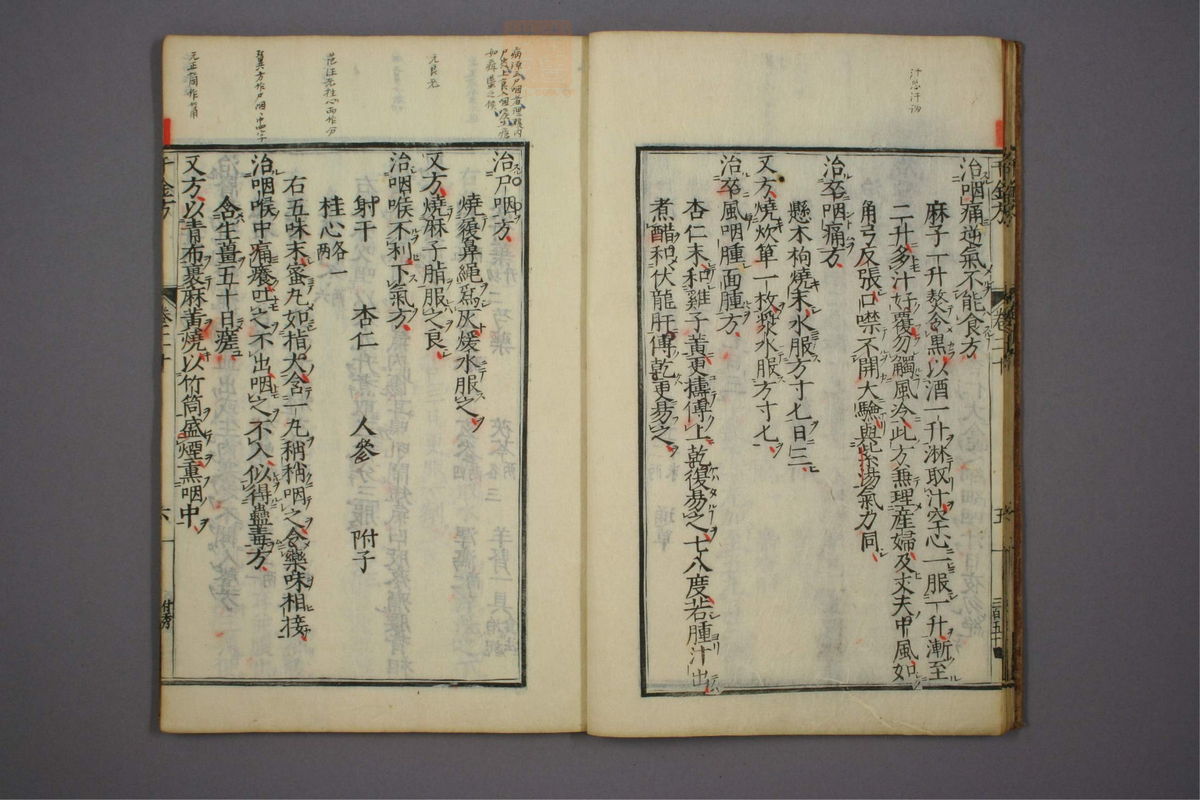 汁忽汗物
治咽痛逆氣不能食方
麻子一升熬令黑以酒一升淋取汁空心一服一升漸至
二升多汗好覆勿觸風冷此方無理産婦及丈夫中風如
角弓反張口噤不開大驗與紫湯氣力同
治卒咽痛方
懸木枸燒末水服方寸匕日三
又方燒炊箄一枚漿水服方寸匕
治卒風咽腫面腫方
杏仁末和雞子黃更擣傅上乾復易之七八度若腫汁出
煮醋和伏龍肝傅乾更易之
千金方
卷二十
五
三百五十
治尸咽方
燒履鼻繩爲灰煖水服之
又方燒麻子脂服之良
治咽喉不利下氣方
射干 杏仁 人參 附子
桂心各一兩
右五味末蜜丸如指大含一丸稍稍咽之令藥味相接
治咽喉中痛癢吐之不出咽之不入似得蟲毒方
含生薑五十日瘥
又方以青布裹麻黃燒以竹筒盛煙熏咽中
千金方
卷二十
六